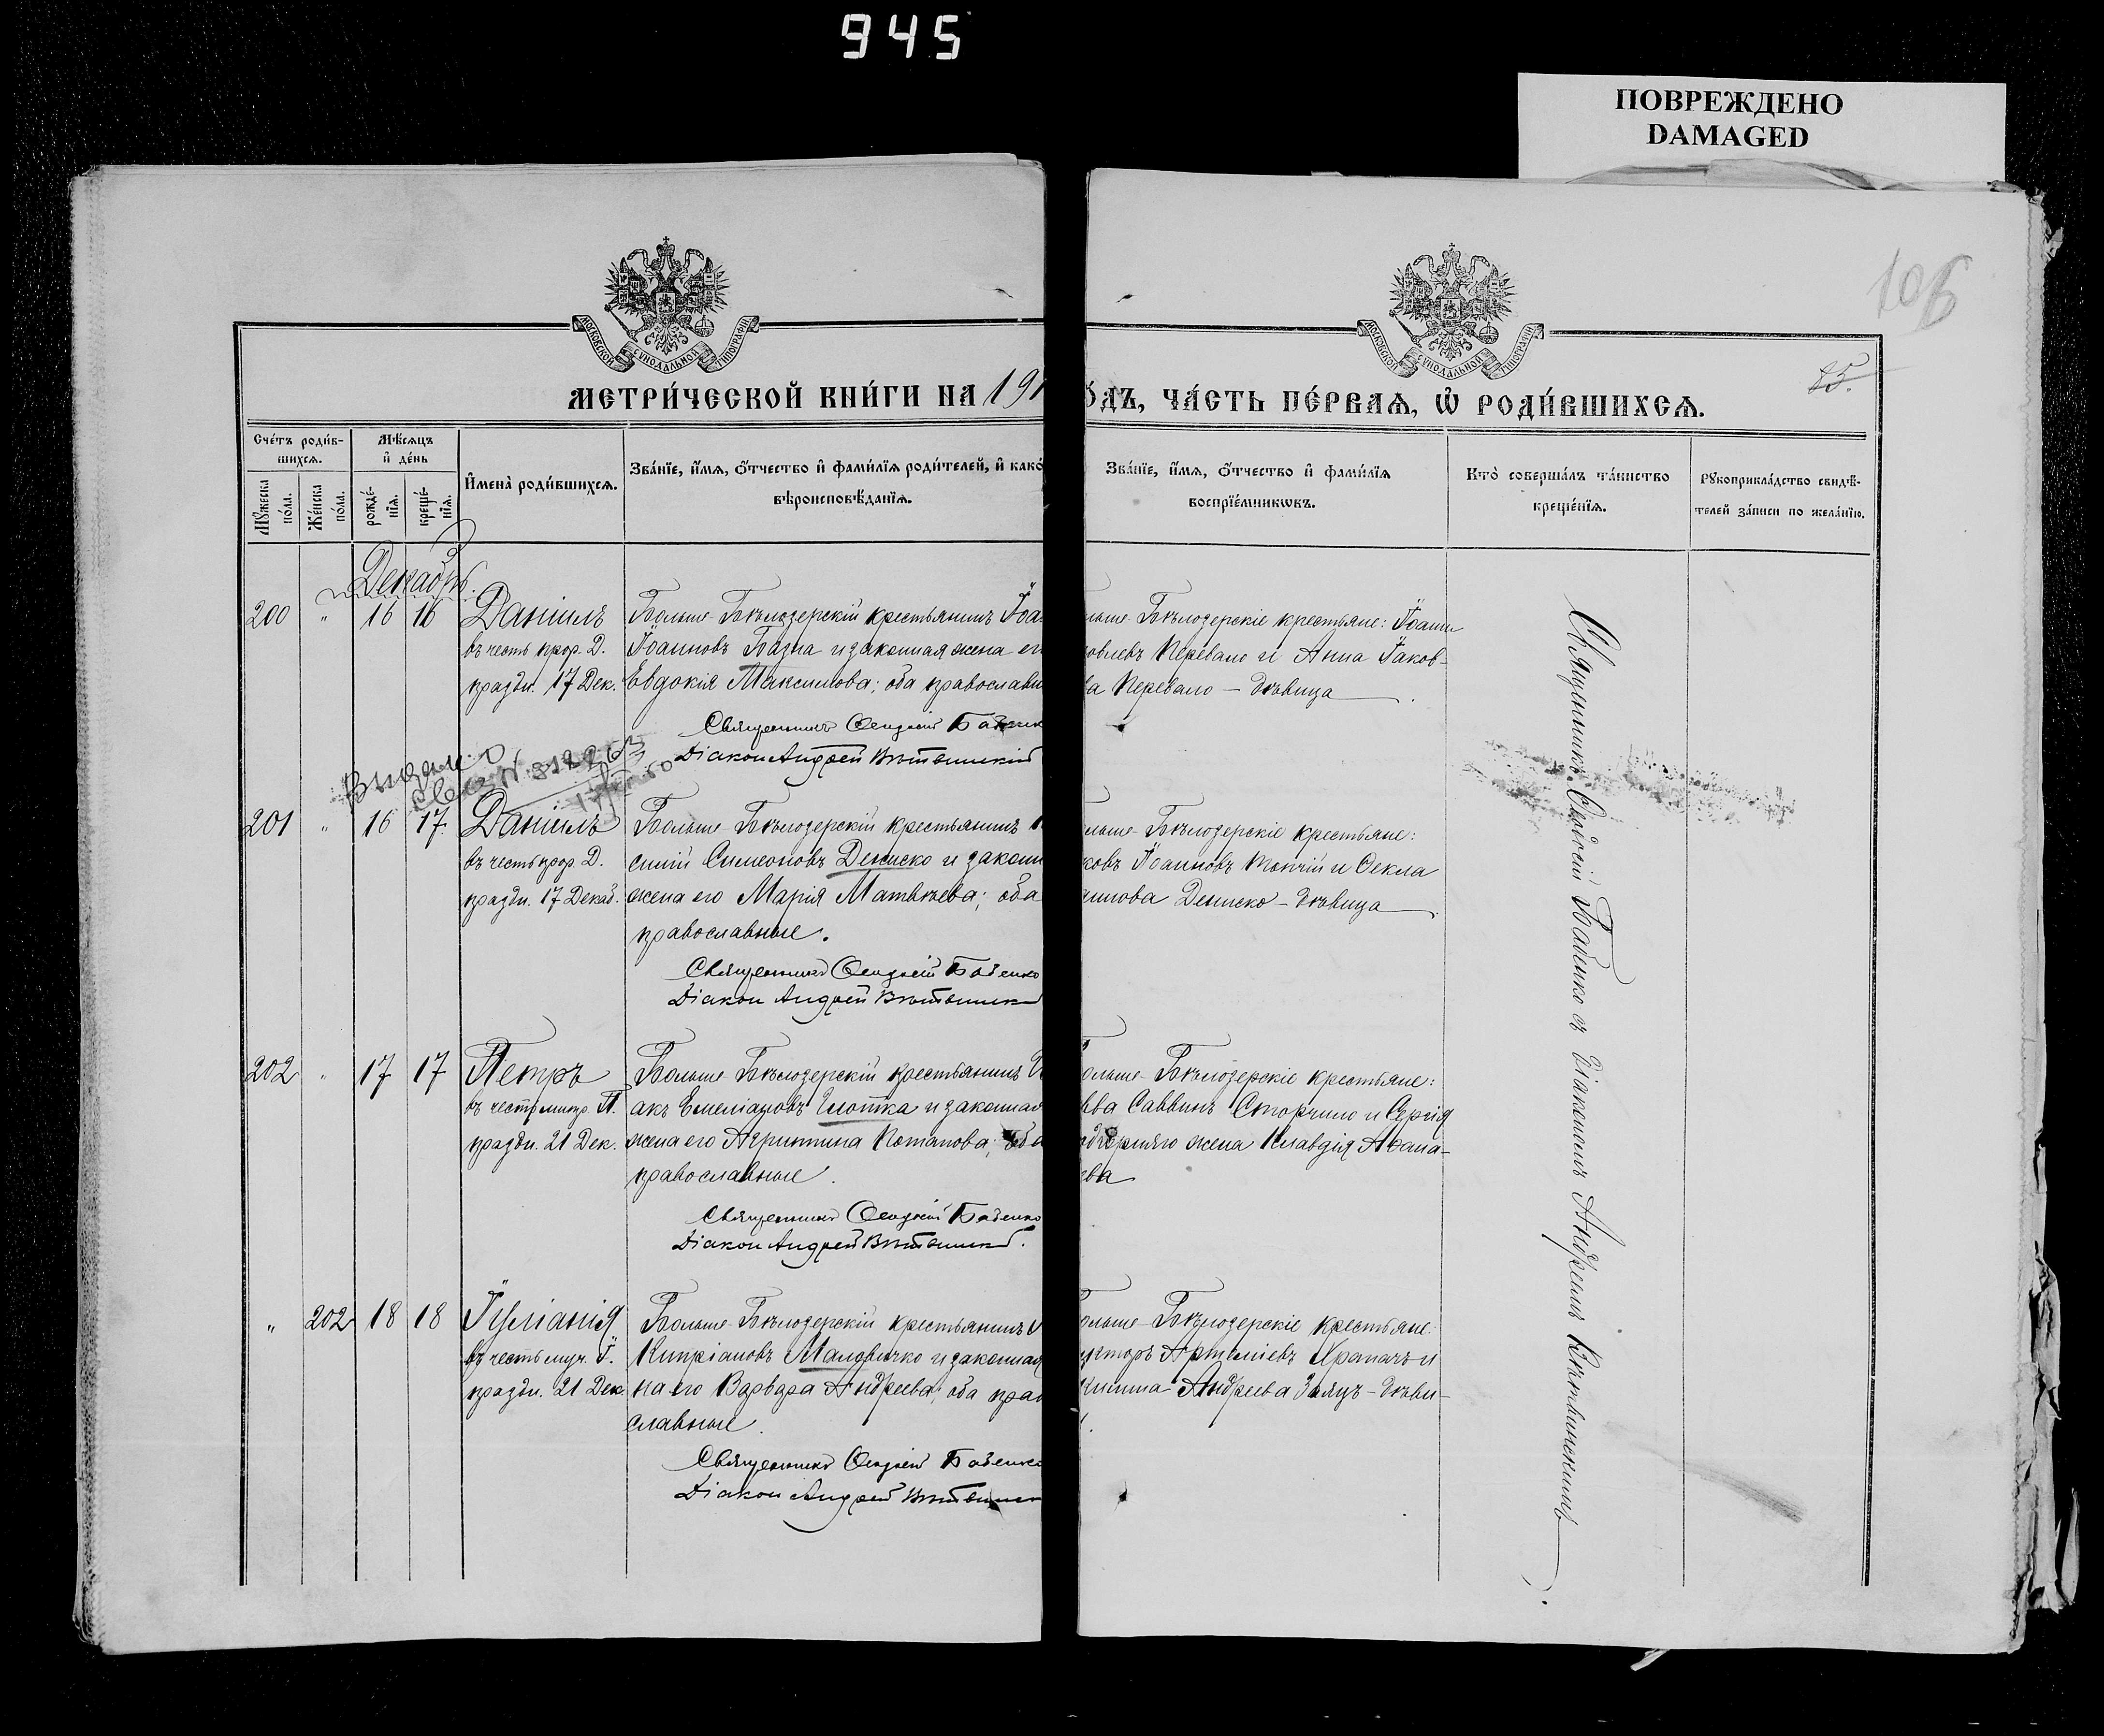 945
ПОВРЕЖДЕНО
DAMAGED
106
85.
МОСКОВСКОЙ СѴНОДАЛЬНОЙ ТИПОГРАФІИ
МОСКОВСКОЙ СѴНОДАЛЬНОЙ ТИПОГРАФІИ
МЕТРИ́ЧЕСКОЙ КНИ́ГИ НА 191
О́ДЪ, ЧА́СТЬ ПЕ́РВАѦ, Ѡ҆ РОДИ́ВШИХСѦ.
Сче́тъ роди́в-
шихсѧ.
Мѣ́сѧцъ
и҆ де́нь
Мꙋ́жеска
по́ла.
Же́нска
по́ла.
рожде́-
нїѧ.
креще́-
нїѧ.
И҆мена̀ роди́вшихсѧ.
Зва́нїе, и҆́мѧ, ѻ҆́тчество и҆ фами́лїѧ роди́телей, и҆ како́
вѣроисповѣ́данїѧ.
Зва́нїе, и҆́мѧ, ѻ҆́тчество и҆ фами́лїѧ
воспрїе́мникѡвъ.
Кто̀ соверша́лъ та́инство
креще́нїѧ.
Рꙋкоприкла́дство свидѣ́-
телей за́писи по жела́нїю.
Декабрь.
200 " 16 16 Даніилъ
въ честь прор. Д.
праздн. 17 Дек.
Больше-Бѣлозерскій крестьянинъ Іоа
Іоанновъ Базна и законная жена ег
Евдокія Максимова; оба православн
Священникъ Ѳеодосій Бабенк
Діаконъ Андрей Вѣтвинскій
льше-Бѣлозерскіе крестьяне: Іоанн
овлевъ Перевало и Анна Іаков-
ва Перевало – дѣвица
Выдано
Св. N 312263
201 " 16 17. Даніилъ
въ честь прор. Д.
праздн. 17 Декаб.
Больше-Бѣлозерскій крестьянинъ
силій Симеоновъ Дениско и законн
жена его Марія Матвѣева; оба
православные.
Священникъ Ѳеодосій Бабенко
Діаконъ Андрей Вѣтвинск
льше-Бѣлозерскіе крестьяне:
ковъ Іоанновъ Токчій и Ѳекла
имова Дениско – дѣвица
202 " 17 17 Петръ
въ честь митр. П.
праздн. 21 Дек.
Больше-Бѣлозерскій крестьянинъ
акъ Емеліановъ Глотка и законная
жена его Агриппина Потапова; оба
православные.
Священникъ Ѳеодосій Бабенко
Діаконъ Андрей Вѣтвинск.
ольше-Бѣлозерскіе крестьяне:
ва Саввинъ Сторчило и Сергія
жена Клавдія Аѳана-
ева
" 202 18 18 Іуліанія
въ честь муч. І.
праздн. 21 Дек.
Больше-Бѣлозерскій крестьянинъ
Кипріановъ Маловичко и законная
на его Варвара Андреева; оба прав
славные.
Священникъ Ѳеодосій Бабенко
Діаконъ Андрей Вѣтвинск
ольше-Бѣлозерскіе крестьяне:
кторъ Артеміевъ Храпачъ и
Андреева Заяцъ – дѣви-
Священникъ Ѳеодосій Бабенко съ діакономъ Андреемъ Вѣтвинскимъ.